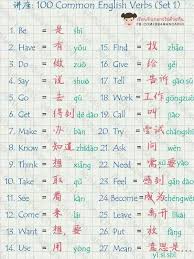 讲座: 100 Common English Verbs (Set 1)
1. Be = 是 shì
2. Have = 有 yǒu
3. Do = 做 zuò
4. Say = 说 shuō
5. Go = 去 qù
6. Get = 得到 dé dào
7. Make = 办 bàn
8. Know = 知道 zhīdào
9. Think = 想 xiǎng
10. Take = 拿 ná
11. See = 看 kàn
12. Come = 来 lái
13. Want = 想要
14. Use = 用 yòng
15. Find = 找 zhǎo
16. Give = 给 gěi
17. Tell = 告诉 gào sù
18. Work = 工作 gōng zuò
19. Call =
20. Try = 尝试 chángshì
21. Ask = 问 wèn
22. Need = 需要 xūyào
23. Feel = 感到 gǎn dào
24. Become = 成为 chéngwéi
25. Leave = 离开 líkāi
26. Put = 放 fàng
27. Mean = 意思是
yì si shì